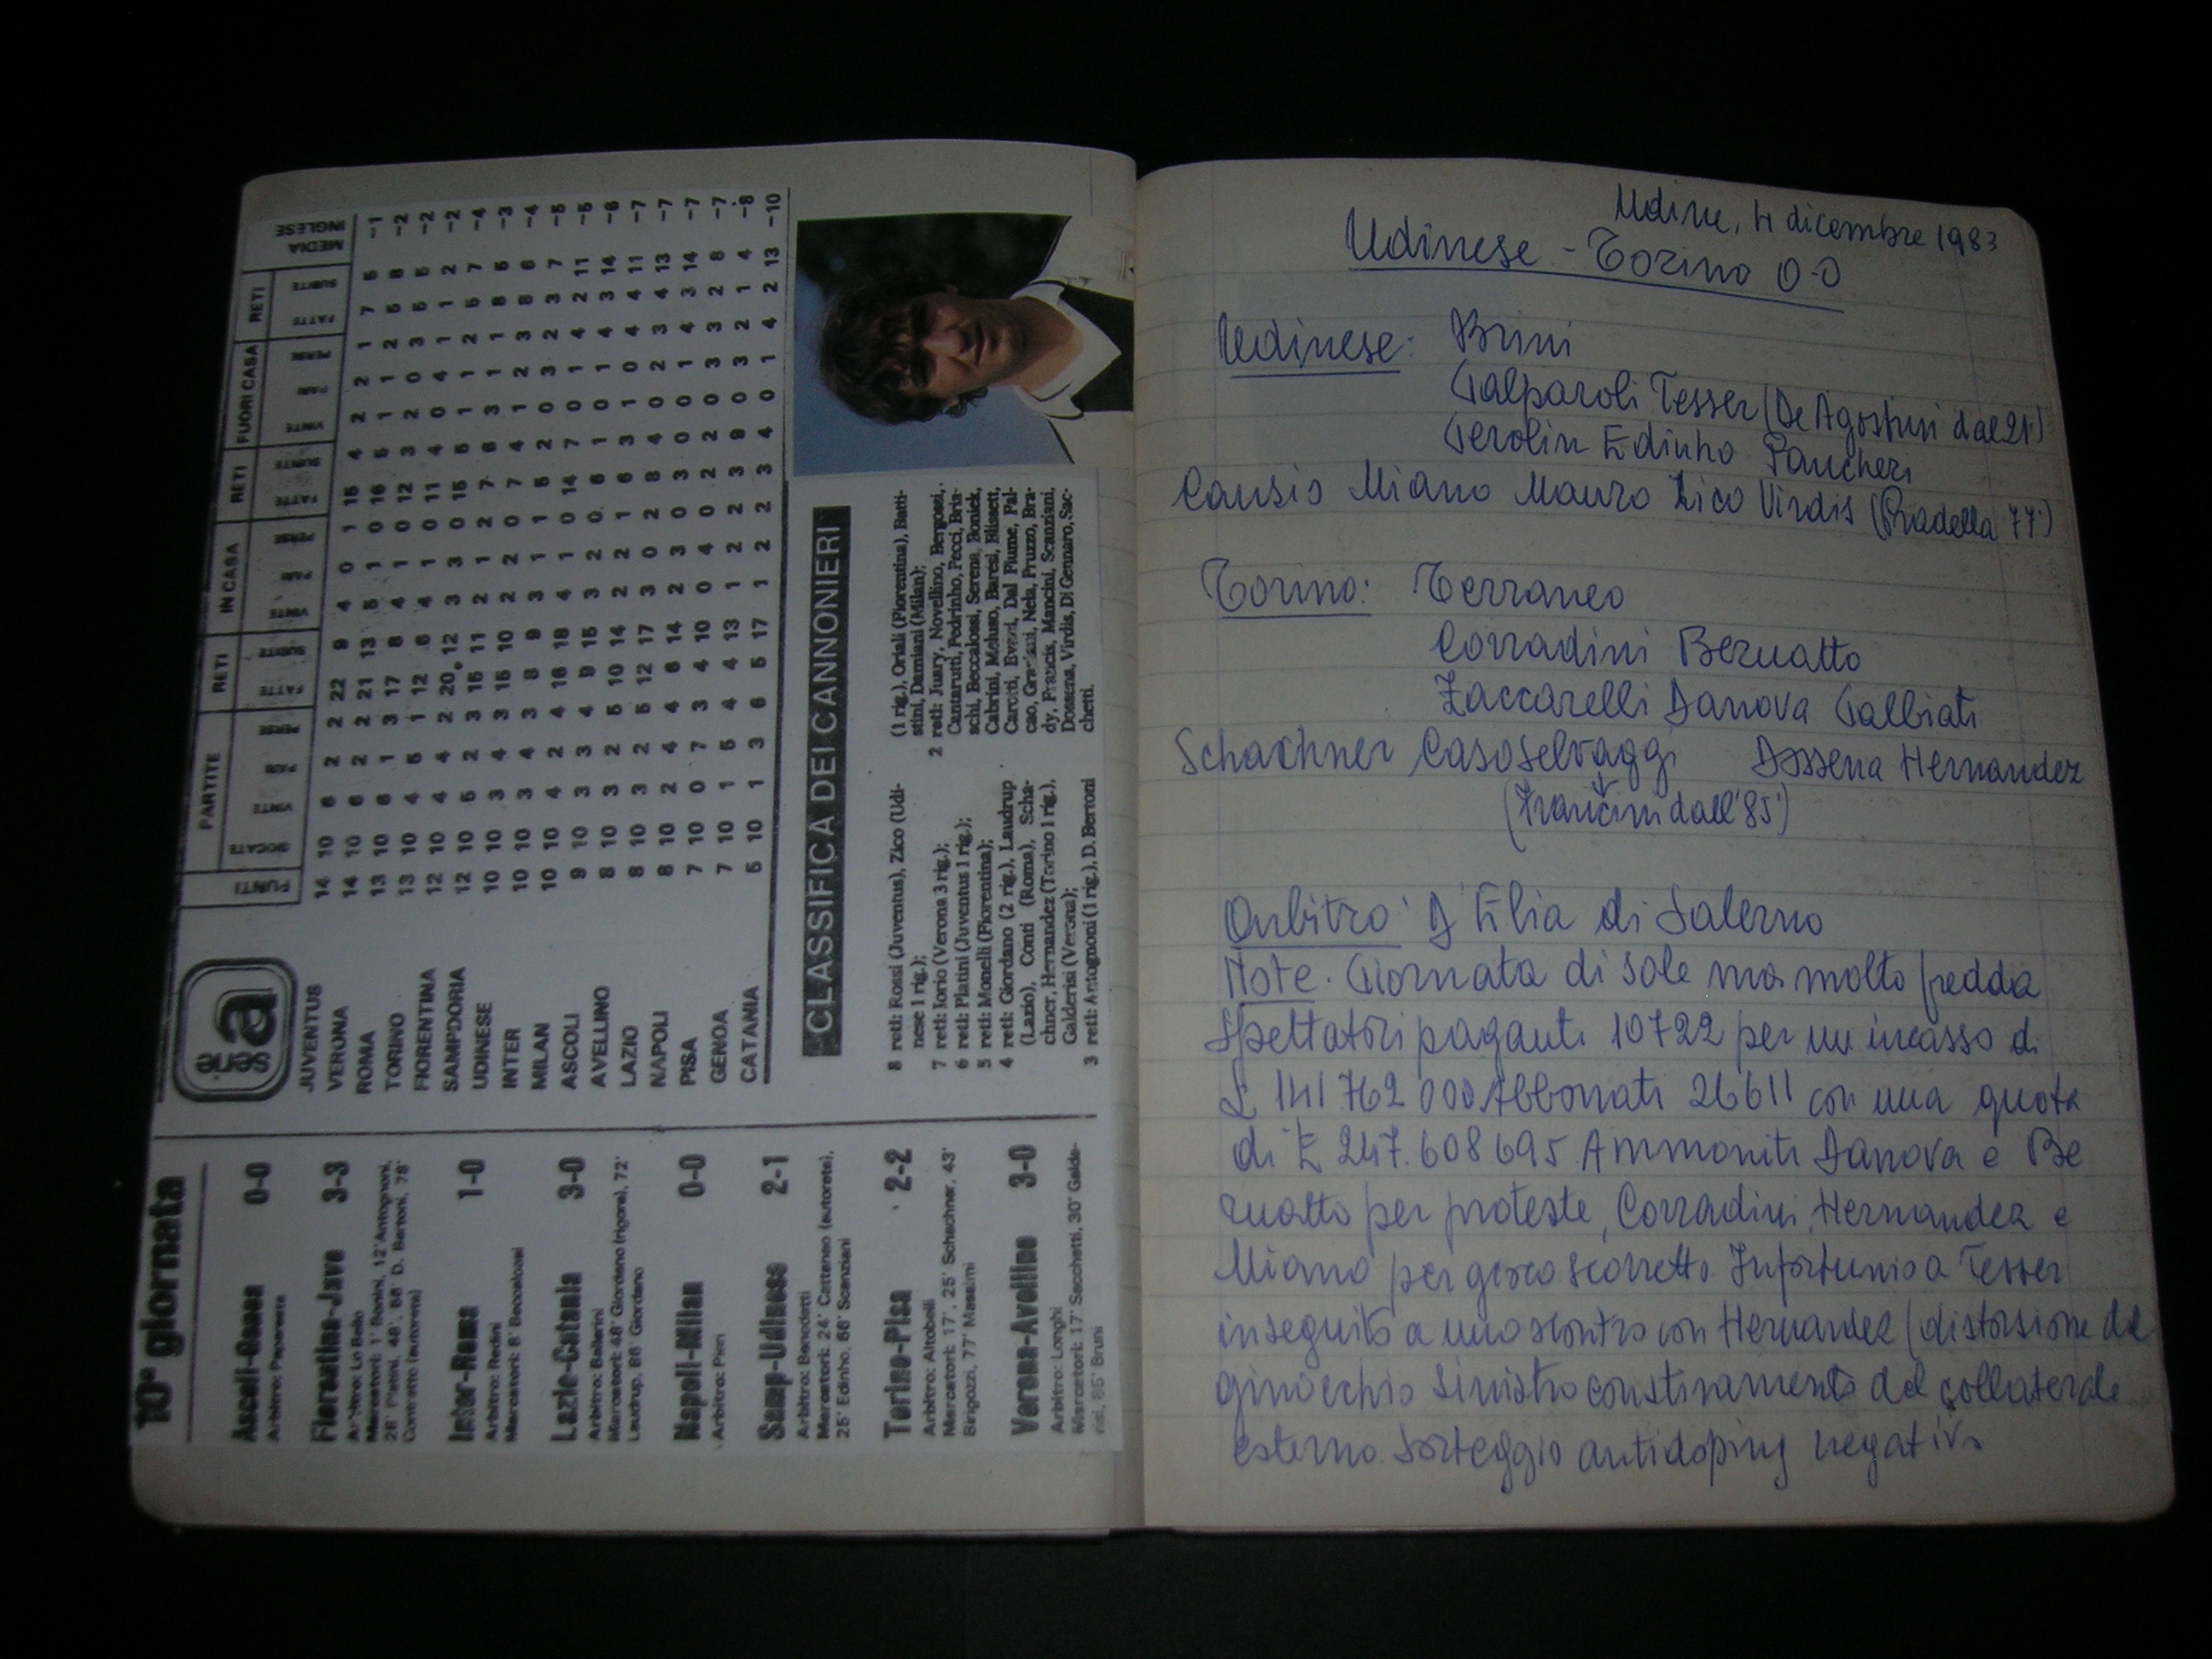 10ª giornata
Ascoli-Genoa 0-0
Arbitro: Paparesta
Fiorentina-Juve 3-3
Arbitro: Lo Bello
Marcatori: 1' Bonini, 12' Antognoni,
28' Platini, 48', 58' D. Bertoni, 78'
Contratto (autorete)
Inter-Roma 1-0
Arbitro: Redini
Marcatori: 8' Beccalossi
Lazio-Catania 3-0
Arbitro: Ballerini
Marcatori: 48' Giordano (rigore), 72'
Laudrup, 86' Giordano
Napoli-Milan 0-0
Arbitro: Pieri
Samp-Udinese 2-1
Arbitro: Benedetti
Marcatori: 24' Cattaneo (autorete),
25' Edinho, 66' Scanziani
Torino-Pisa 2-2
Arbitro: Altobelli
Marcatori: 17', 25' Schachner, 43'
Birigozzi, 77' Massimi
Verona-Avellino 3-0
Arbitro: Longhi
Marcatori: 17' Sacchetti, 30' Galde-
risi, 85' Bruni
serie a
PUNTI PARTITE RETI IN CASA RETI FUORI CASA RETI MEDIA INGLESE
GIOCATE VINTE PARI PERSE FATTE SUBITE VINTE PARI PERSE FATTE SUBITE VINTE PARI PERSE FATTE SUBITE
JUVENTUS 14 10 6 2 2 22 9 4 0 1 15 4 2 2 1 7 5 -1
VERONA 14 10 6 2 2 21 13 5 1 0 16 5 1 1 2 5 8 -2
ROMA 13 10 6 1 3 17 8 4 1 0 12 3 2 0 3 5 5 -2
TORINO 13 10 4 5 1 12 6 4 1 0 11 4 0 4 1 1 2 -2
FIORENTINA 12 10 4 4 2 20 12 3 3 0 15 5 1 1 2 5 7 -4
SAMPDORIA 12 10 5 2 3 15 11 2 1 2 7 6 3 1 1 8 5 -3
UDINESE 10 10 3 4 3 15 10 2 2 0 7 4 1 2 3 8 6 -4
INTER 10 10 3 4 3 8 9 3 1 1 5 2 0 3 2 3 7 -5
MILAN 10 10 4 2 4 16 18 4 1 0 14 7 0 1 4 2 11 -5
ASCOLI 9 10 3 3 4 9 15 3 2 0 6 1 0 1 4 3 14 -6
AVELLINO 8 10 3 2 5 10 14 2 2 1 6 3 1 0 4 4 11 -7
LAZIO 8 10 3 2 5 12 17 3 0 2 8 4 0 2 3 4 13 -7
NAPOLI 8 10 2 4 4 6 14 2 3 0 3 0 0 1 4 3 14 -7
PISA 7 10 0 7 3 4 10 0 4 0 2 2 0 3 3 2 8 -7
GENOA 7 10 1 5 4 4 13 1 2 2 3 9 0 3 2 1 4 -8
CATANIA 5 10 1 3 6 5 17 1 2 2 3 4 0 1 4 2 13 -10
CLASSIFICA DEI CANNONIERI
8 reti: Rossi (Juventus), Zico (Udi-
nese 1 rig.);
7 reti: Iorio (Verona 3 rig.);
6 reti: Platini (Juventus 1 rig.);
5 reti: Monelli (Fiorentina);
4 reti: Giordano (2 rig.), Laudrup
(Lazio), Conti (Roma), Scha-
chner, Hernandez (Torino 1 rig.),
Galderisi (Verona);
3 reti: Antognoni (1 rig.), D. Bertoni
(1 rig.), Oriali (Fiorentina), Batti-
stini, Damiani (Milan);
2 reti: Juary, Novellino, Bergossi,
Cantarutti, Pedrinho, Pecci, Bria-
schi, Beccalossi, Serena, Boniek,
Cabrini, Meluso, Baresi, Blissett,
Carotti, Evani, Dal Fiume, Fal-
cao, Graziani, Nela, Pruzzo, Bra-
dy, Francis, Mancini, Scanziani,
Dossena, Virdis, Di Gennaro, Sac-
chetti.
Udine, 4 dicembre 1983
Udinese - Torino 0-0
Udinese: Brini
Galparoli Tesser (De Agostini dal 21')
Gerolin Edinho Pancheri
Causio Miano Mauro Zico Virdis (Pradella 77')
Torino: Terraneo
Corradini Beruatto
Zaccarelli Danova Galbiati
Schachner Caso Selvaggi Dossena Hernandez
(Francini dall'85')
Arbitro: D'Elia di Salerno
Note. Giornata di sole ma molto fredda
Spettatori paganti 10722 per un incasso di
£ 141 762 000. Abbonati 26611 con una quota
di £ 247.608 695. Ammoniti Danova e Be
ruatto per proteste, Corradini, Hernandez e
Miano per gioco scorretto. Infortunio a Tesser
in seguito a uno scontro con Hernandez (distorsione del
ginocchio sinistro con stiramento del collaterale
esterno. Sorteggio antidoping negativo